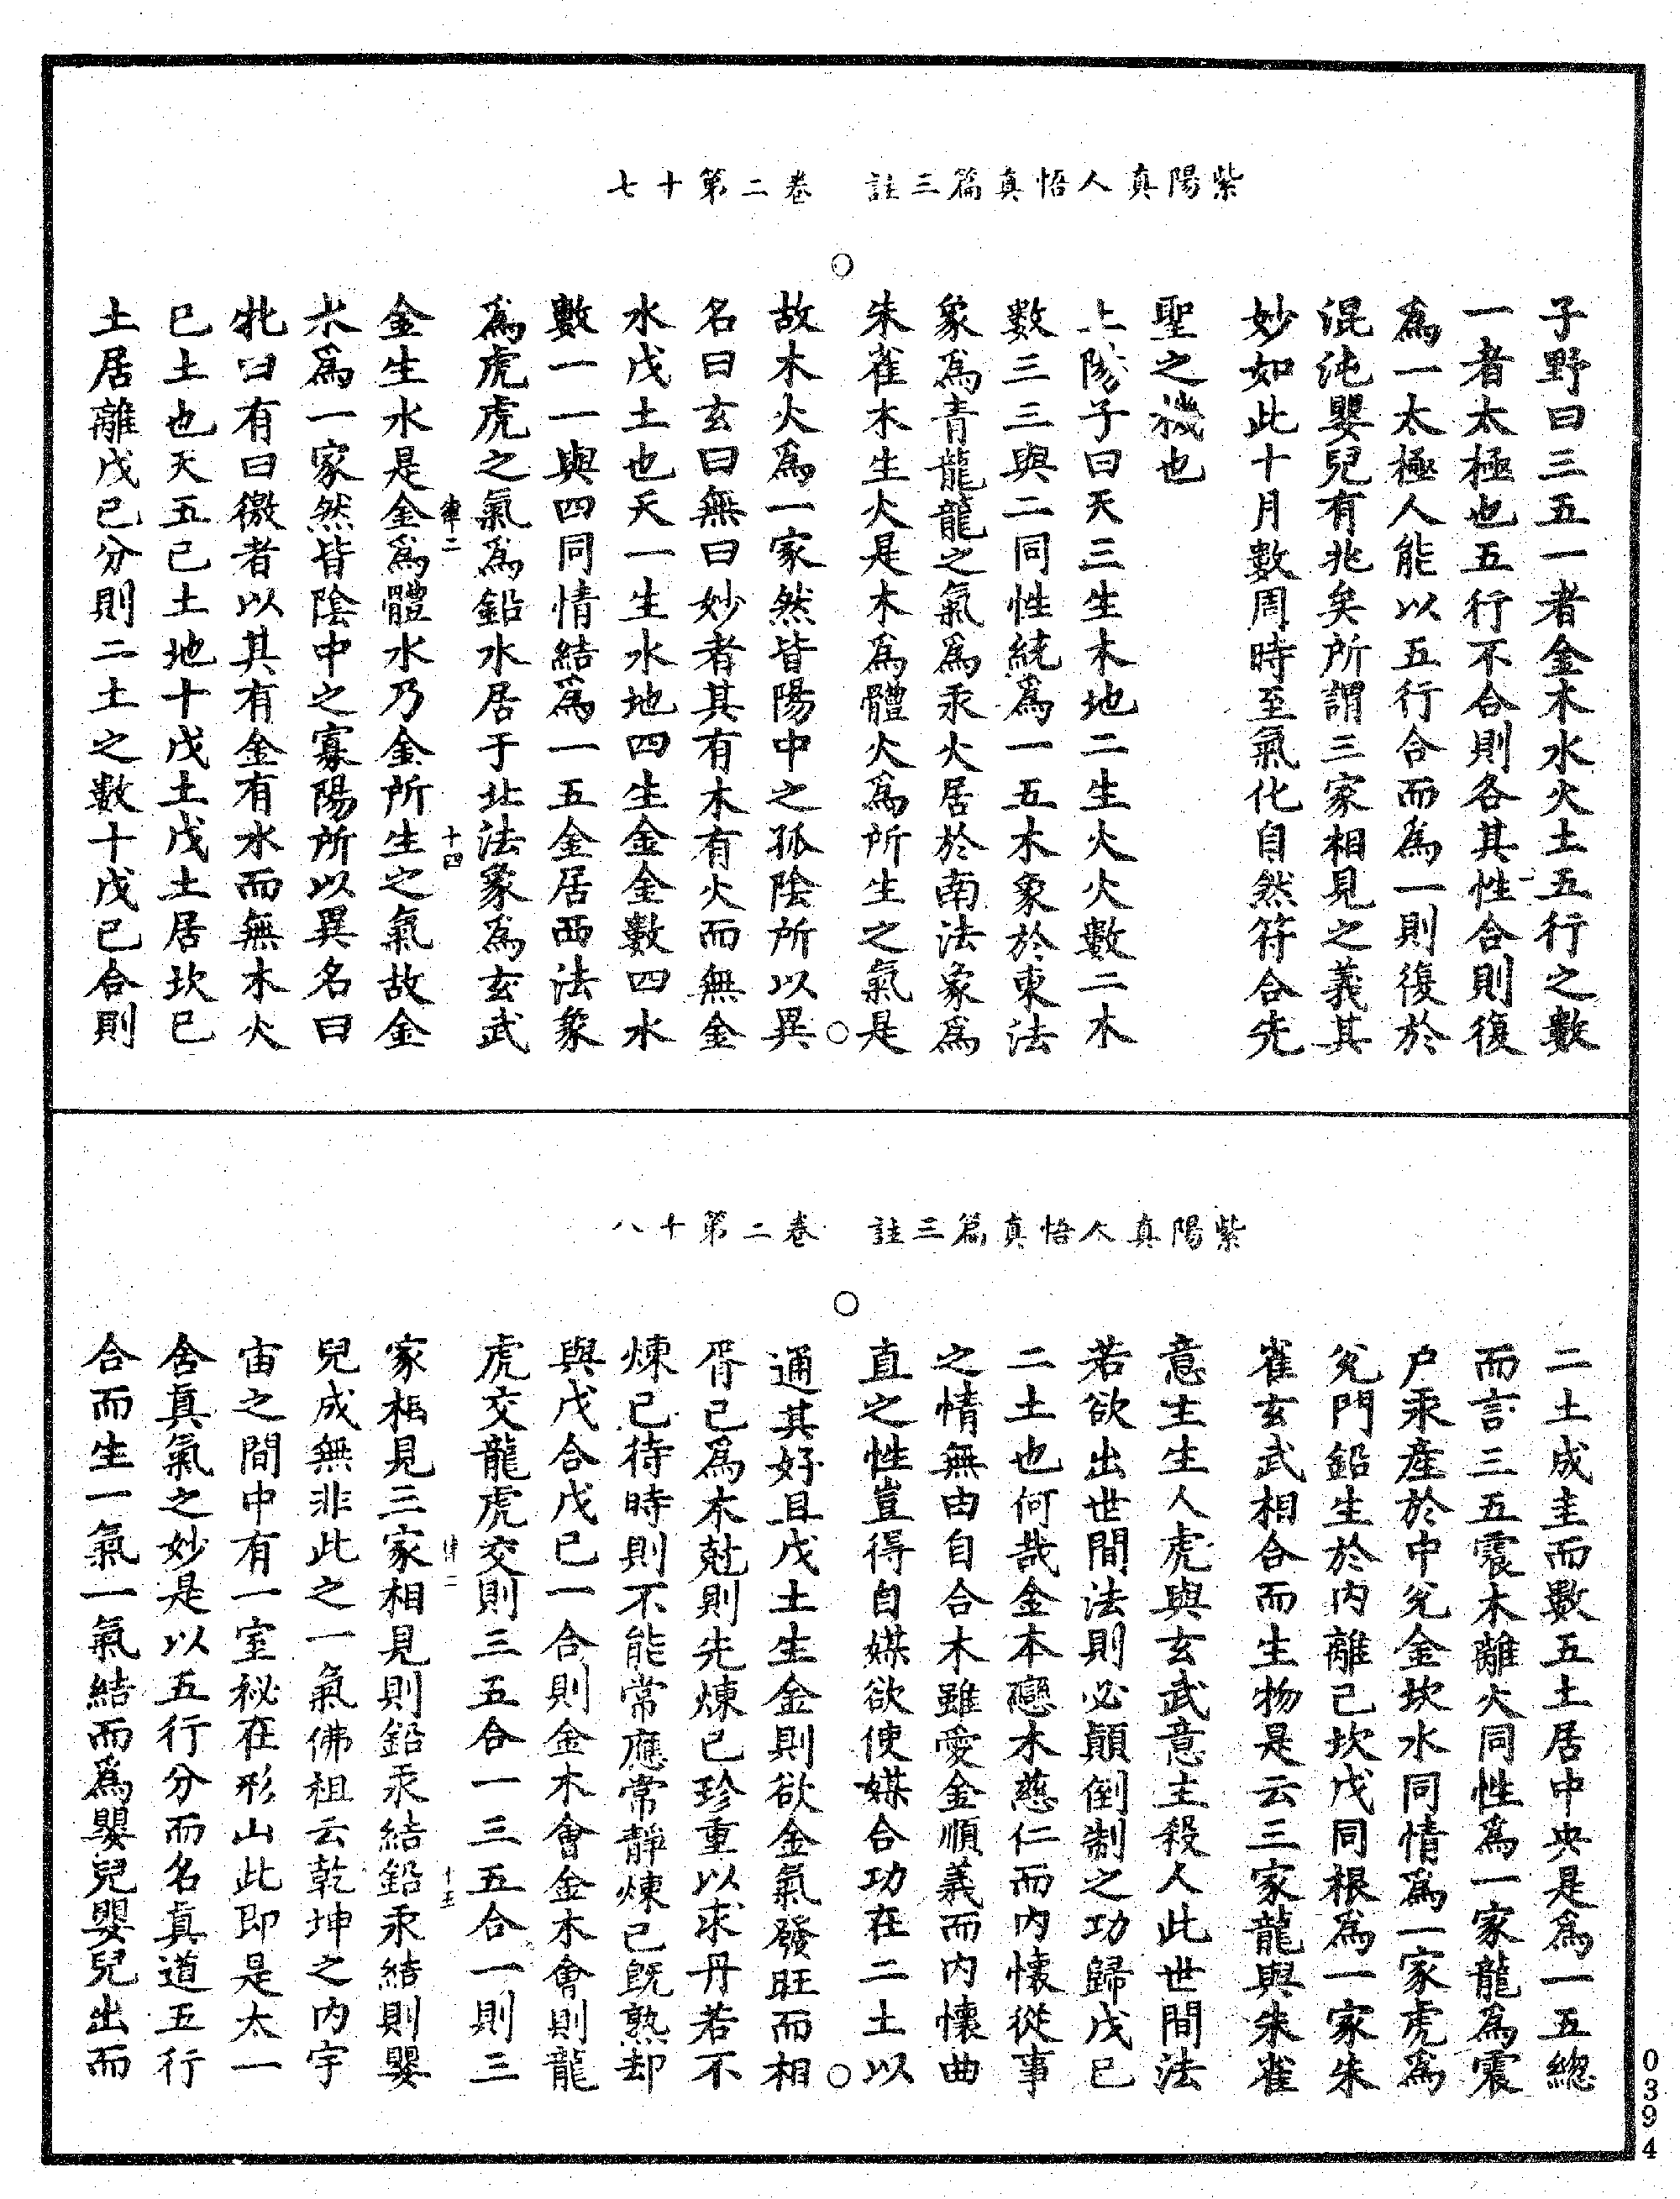 紫陽真人悟真篇三註　卷二第十七
子野曰三五一者金木水火土五行之數
一者太極也五行不合則各其性合則復
為一太極人能以五行合而為一則復於
混沌嬰兒有兆矣所謂三家相見之義其
妙如此十月數周時至氣化自然符合先
聖之機也
上陽子曰天三生木地二生火火數二木
數三三與二同性統為一五木象於東法
象為青龍龍之氣為汞火居於南法象為
朱雀木生火是木為體火為所生之氣是
故木火為一家然皆陽中之孤陰所以異
名曰玄曰無曰妙者其有木有火而無金
水戊土也天一生水地四生金金數四水
數一一與四同情結為一五金居西法象
為虎虎之氣為鉛水居于北法象為玄武
律二　十四
金生水是金為體水乃金所生之氣故金
水為一家然皆陰中之寡陽所以異名曰
牝曰有曰徼者以其有金有水而無木火
己土也天五己土地十戊土戊土居坎己
土居離戊己分則二土之數十戊己合則
紫陽真人悟真篇三註　卷二第十八
二土成圭而數五土居中央是為一五總
而言三五震木離火同性為一家龍為震
户汞產於中兊金坎水同情為一家虎為
兊門鉛生於內離己坎戊同根為一家朱
雀玄武相合而生物是云三家龍與朱雀
意主生人虎與玄武意主殺人此世間法
若欲出世間法則必顛倒制之功歸戊己
二土也何哉金本戀木慈仁而內懷從事
之情無由自合木雖愛金順義而內懷曲
直之性豈得自媒欲使媒合功在二土以
通其好且戊土生金則欲金氣發旺而相
胥己為木尅則先煉己珍重以求丹若不
煉己待時則不能常應常靜煉己旣熟却
與戊合戊己一合則金木會金木會則龍
虎交龍虎交則三五合一三五合一則三
律二　十五
家相見三家相見則鉛汞結鉛汞結則嬰
兒成無非此之一氣佛祖云乾坤之內宇
宙之間中有一室祕在形山此即是太一
含真氣之妙是以五行分而名真道五行
合而生一氣一氣結而為嬰兒嬰兒出而
0394